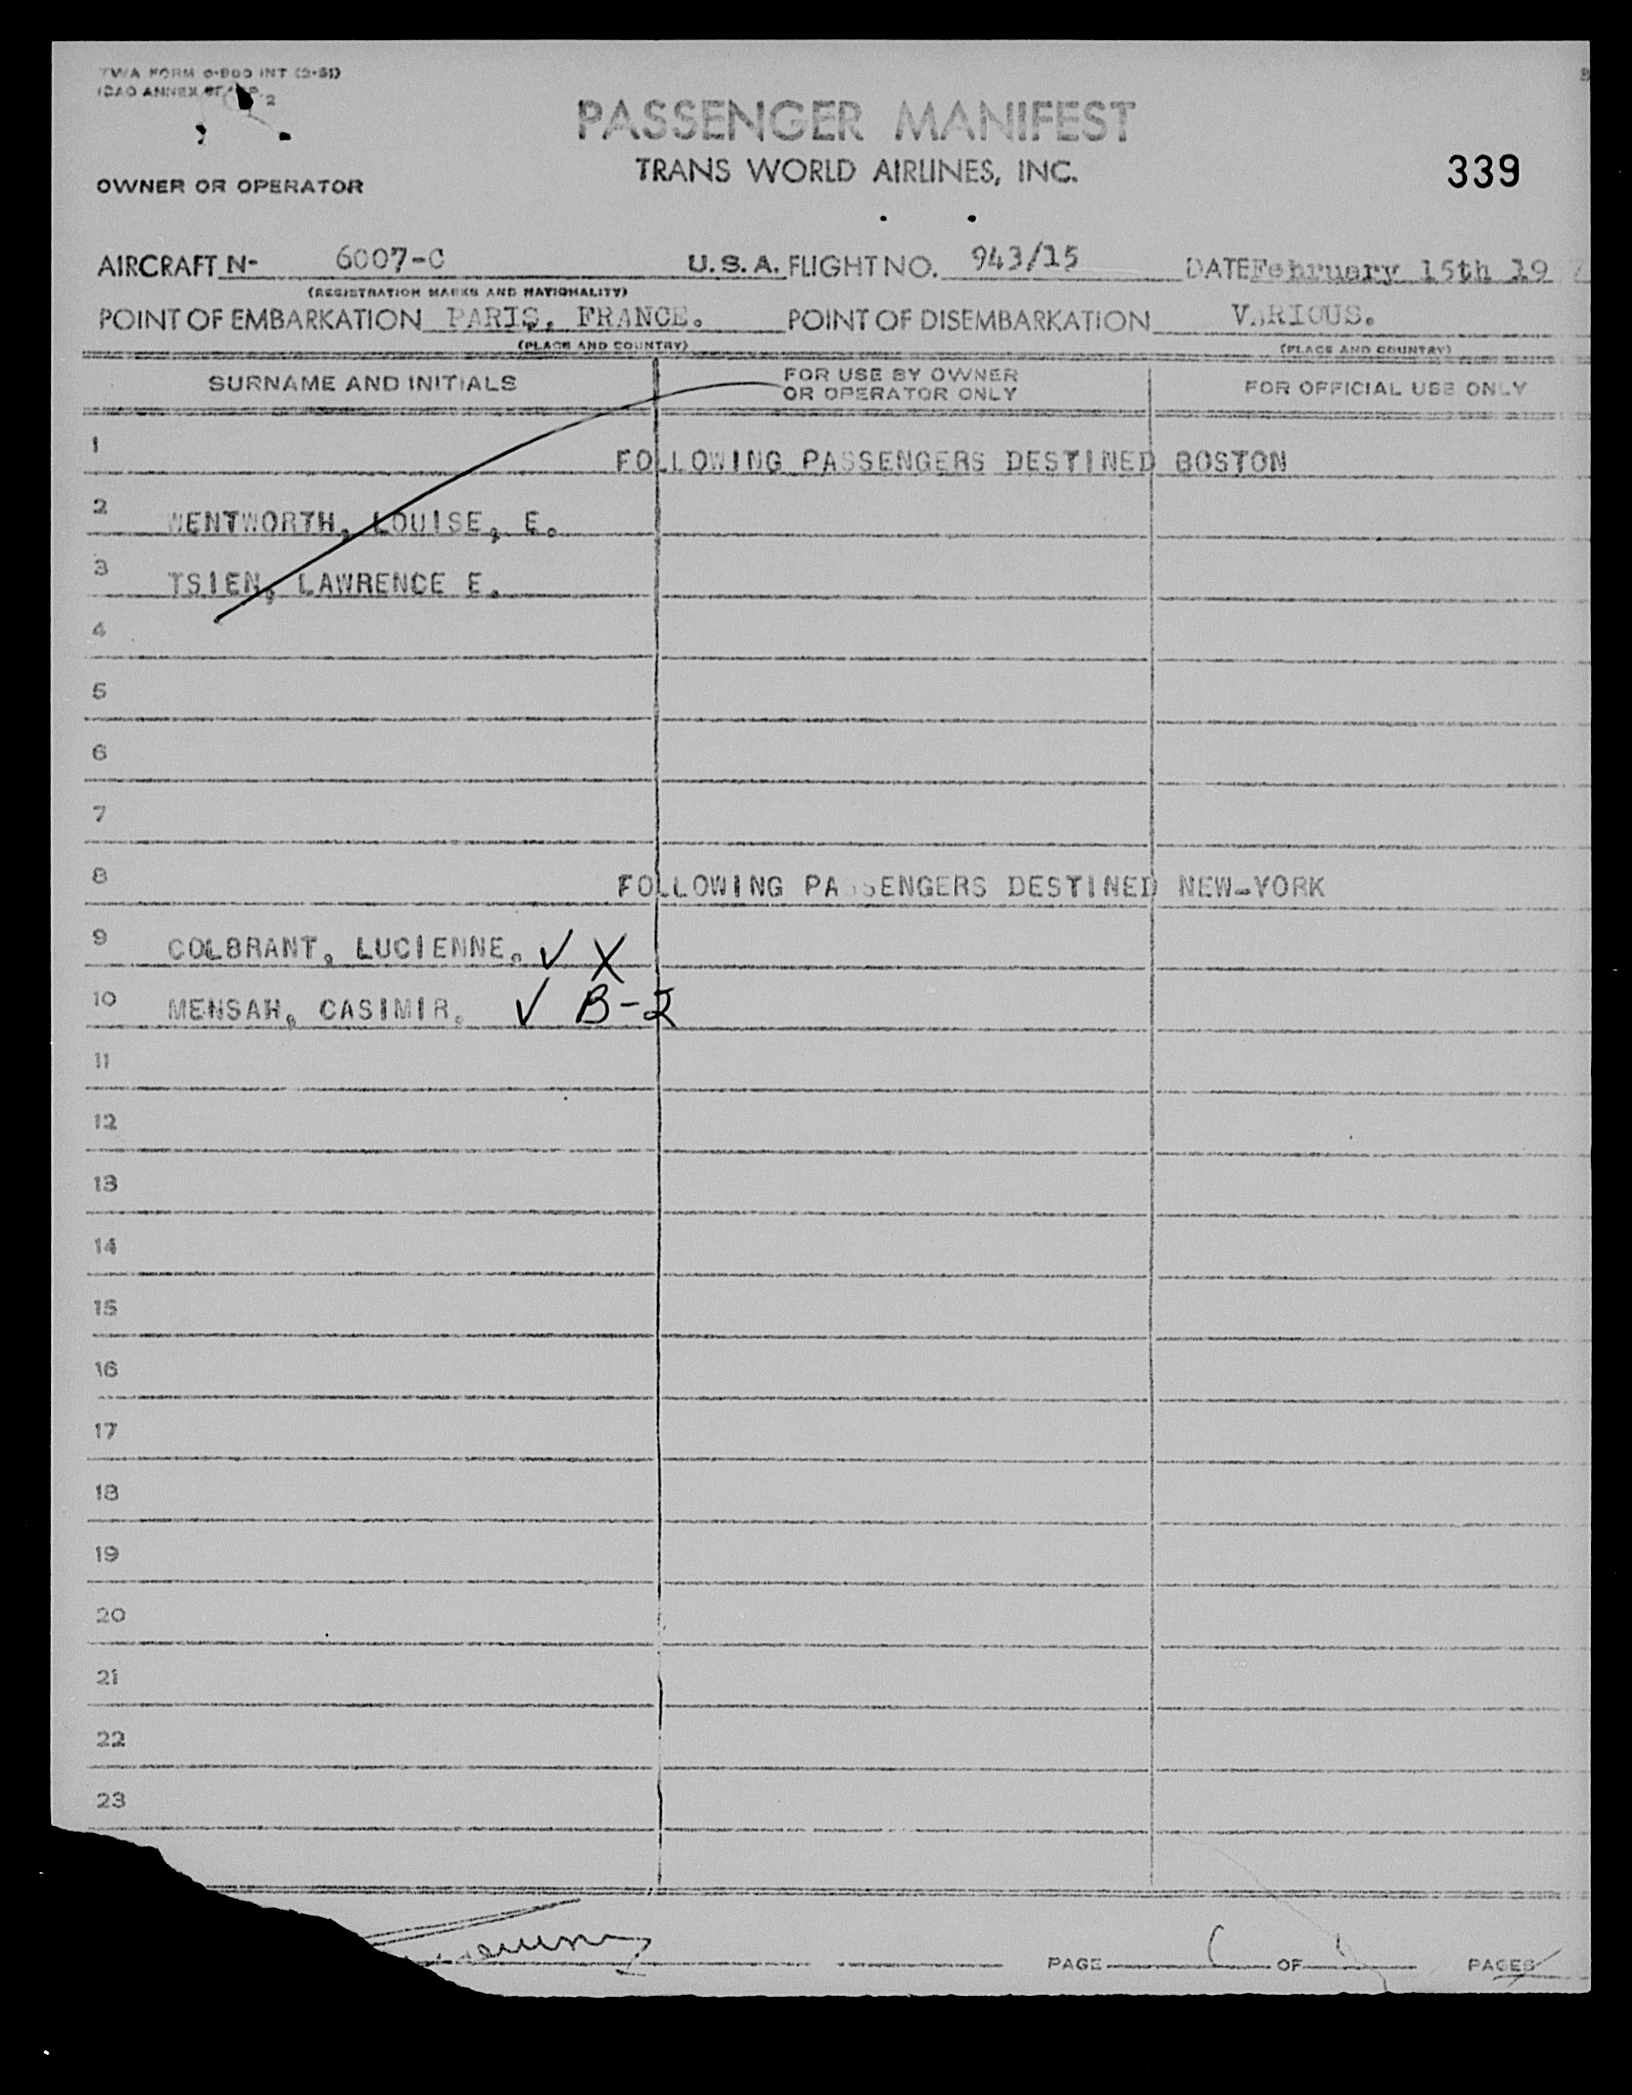 TWA FORM
ICAO ANNEX 2
PASSENGER MANIFEST
TRANS WORLD AIRLINES, INC.
339
OWNER OR OPERATOR
AIRCRAFT N- 6007-C U.S.A. FLIGHT NO. 943/15 DATE February 15th 19
(REGISTRATION MARKS AND NATIONALITY)
POINT OF EMBARKATION PARIS, FRANCE. POINT OF DISEMBARKATION VARIOUS.
(PLACE AND COUNTRY) (PLACE AND COUNTRY)
SURNAME AND INITIALS FOR USE BY OWNER OR OPERATOR ONLY FOR OFFICIAL USE ONLY
1 FOLLOWING PASSENGERS DESTINED BOSTON
2 WENTWORTH, LOUISE, E.
3 TSIEN, LAWRENCE E.
4
5
6
7
8 FOLLOWING PASSENGERS DESTINED NEW-YORK
9 COLBRANT, LUCIENNE. ✓ X
10 MENSAH, CASIMIR. ✓ B-2
11
12
13
14
15
16
17
18
19
20
21
22
23
PAGE OF PAGES